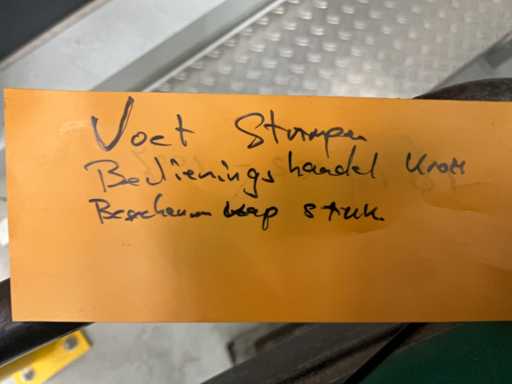 Voet Stompen
Bedieningshandel Krom
Bescherm kap stuk